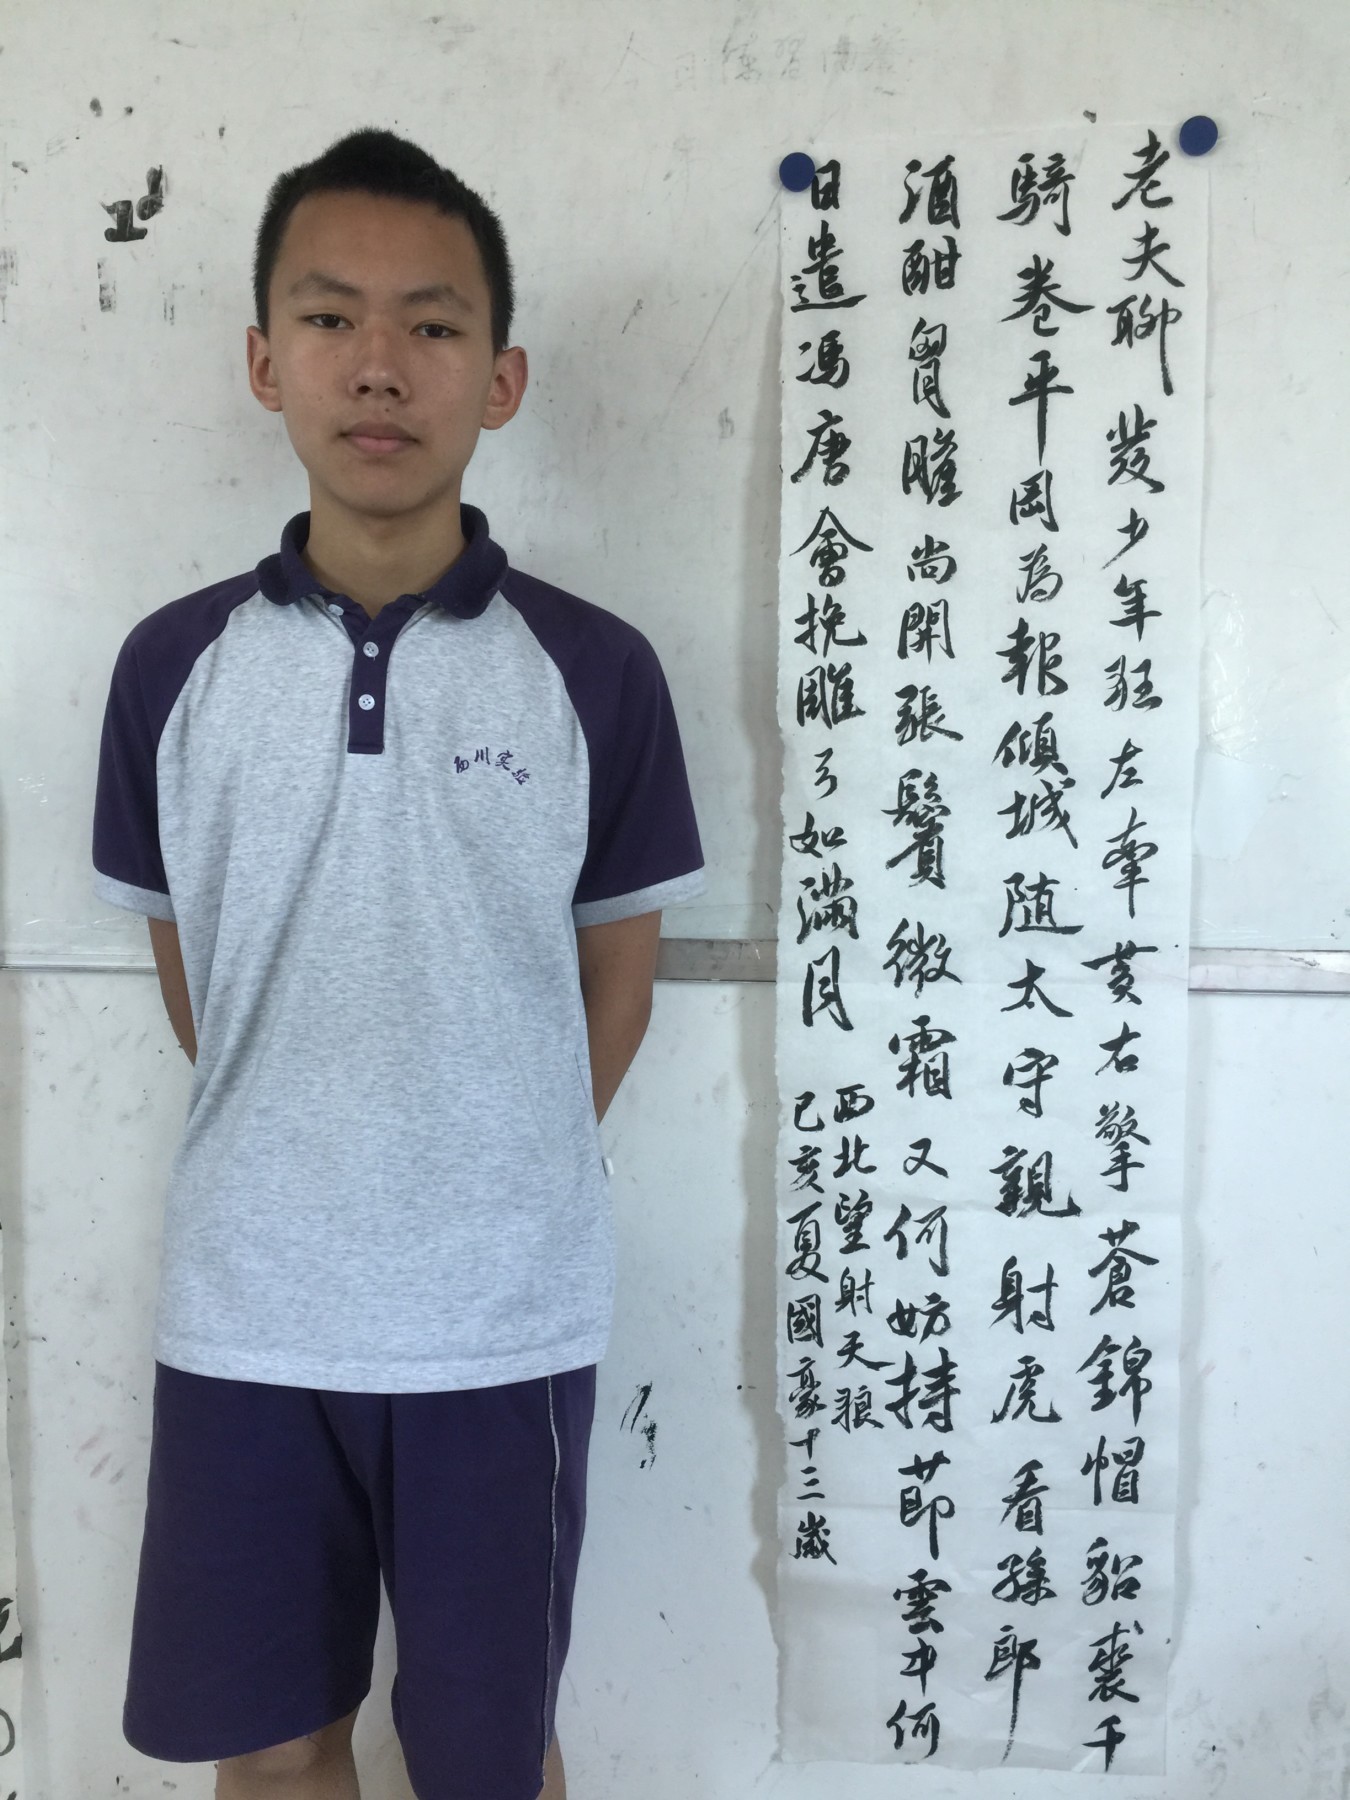 老夫聊發少年狂左牽黄右擎蒼錦帽貂裘千
騎卷平岡為報傾城随太守親射虎看孫郎
酒酣胷膽尚開張鬢微霜又何妨持莭雲中何
日遣馮唐會挽雕弓如滿月
西北望射天狼
已亥夏國豪十三歲
西川实验
今日练习